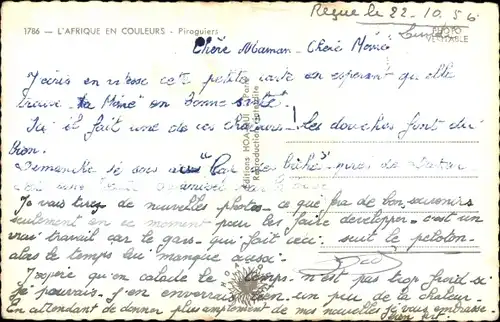 Reçue le 22-10.56
Lundi
1786 — L'AFRIQUE EN COULEURS - Piroguiers
PHOTO VÉRITABLE
Chère Maman - Chère Mémé
J'écris en vitesse cette petite carte en espérant qu'elle
trouve la Mémé en bonne santé.
Ici il fait une de ces chaleurs! les douches font du
bien.
Dimanche je suis "Cap des biches" près de
Je vous tire de nouvelles photos - ce que fera de bon souvenirs
seulement en ce moment pour les faire developper - c'est un
vrai travail car le gars qui fait ceci suit le peloton
alors le temps lui manque aussi.
J'espère qu'en le temps n'est pas trop froid - si
je pouvais j'en enverrais bien un peu de la chaleur
en attendant de donner plus amplement de mes nouvelles je vous embrasse
bien fort.
Editions HOA-QUI
Reproduction interdite